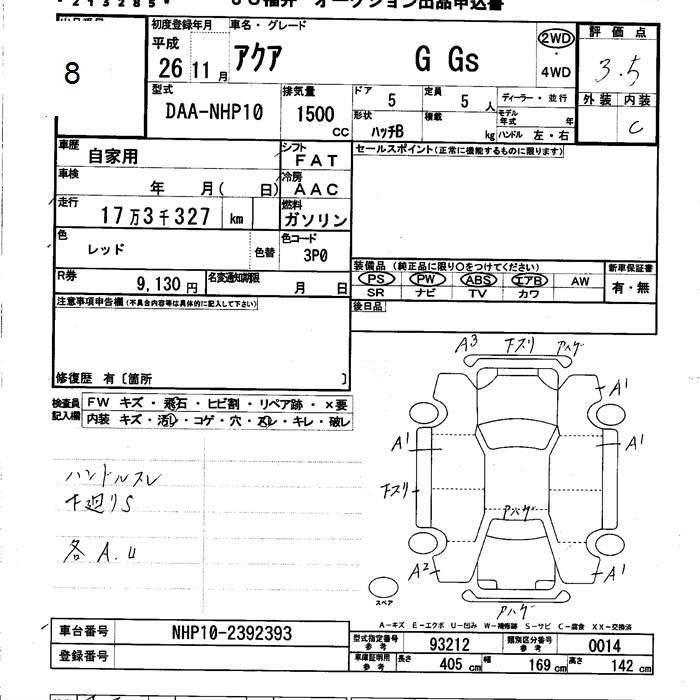 オークション出品申込書
8
初度登録年月
平成
26 11 月
車名・グレード
アクア G Gs
2WD
・
4WD
評価点
3.5
外装 内装
C
型式
DAA-NHP10
排気量
1500 CC
ドア
5
定員
5 人
形状
ハッチB
積載
kg
ディーラー・並行
モデル年式 年
ハンドル 左・右
車歴
自家用
シフト
FAT
セールスポイント(正常に機能するものに限ります)
車検
年 月( 日)
冷房
AAC
走行
17万3千327 km
燃料
ガソリン
色
レッド
色替
色コード
3P0
R券
9,130 円
名変通知期限
月 日
装備品 (純正品に限り○をつけてください)
PS PW ABS エアB AW
SR ナビ TV カワ
新車保証書
有・無
後日品
注意事項申告欄(不具合内容等は具体的に記入して下さい)
修復歴 有〔箇所 〕
検査員記入欄
FW キズ・飛石・ヒビ割・リペア跡・×要
内装 キズ・汚レ・コゲ・穴・スレ・キレ・破レ
ハンドルスレ
下廻りS
各A.U
A3 下スリ アハゲ
A1
A1 A1
下スリ
アハゲ
A2 A1
アハゲ
スペア
A-キズ E-エクボ U-凹み W-補修跡 S-サビ C-腐食 XX-交換済
車台番号
NHP10-2392393
登録番号
型式指定番号 参考
93212
類別区分番号 参考
0014
車庫証明用 参考
長さ 405 cm 幅 169 cm 高さ 142 cm